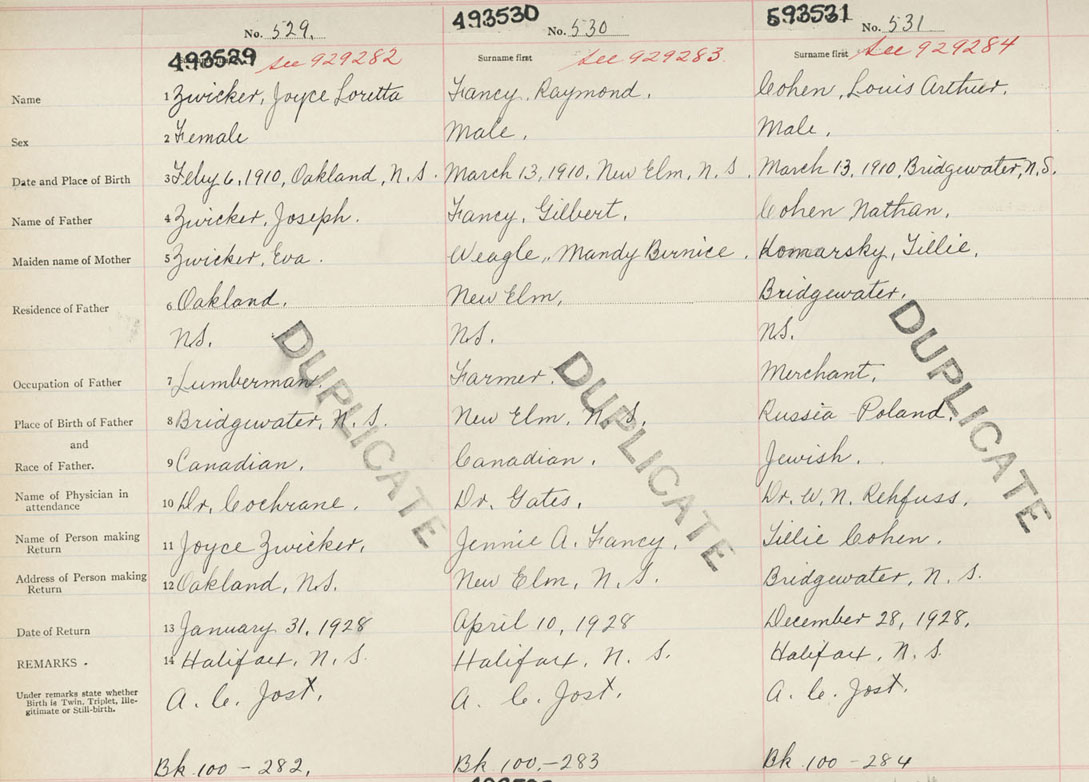 493530
593531
No. 529.
No. 530
No. 531
493529 see 929282
Surname first See 929283.
Surname first See 929284
Name 1 Zwicker, Joyce Loretta Fancy, Raymond. Cohen, Louis Arthur.
Sex 2 Female Male. Male.
Date and Place of Birth 3 Feby 6, 1910, Oakland, N.S. March 13, 1910, New Elm, N.S. March 13, 1910, Bridgewater, N.S.
Name of Father 4 Zwicker, Joseph. Fancy, Gilbert. Cohen Nathan.
Maiden name of Mother 5 Zwicker, Eva. Weagle, Mandy Bernice. Komarsky, Tillie.
Residence of Father 6 Oakland. New Elm, Bridgewater.
N.S. N.S. N.S.
Occupation of Father 7 Lumberman. Farmer. Merchant.
Place of Birth of Father 8 Bridgewater, N.S. New Elm, N.S. Russia Poland.
and
Race of Father. 9 Canadian. Canadian. Jewish.
Name of Physician in
attendance 10 Dr. Cochrane. Dr. Gates. Dr. W. N. Rehfuss.
Name of Person making
Return 11 Joyce Zwicker. Jennie A. Fancy. Tillie Cohen.
Address of Person making
Return 12 Oakland, N.S. New Elm, N.S. Bridgewater, N.S.
Date of Return 13 January 31, 1928 April 10, 1928 December 28, 1928.
REMARKS. 14 Halifax, N.S. Halifax, N.S. Halifax, N.S.
Under remarks state whether
Birth is Twin, Triplet, Ille-
gitimate or Still-birth.
A. C. Jost. A. C. Jost. A. C. Jost.
Bk 100 - 282. Bk 100. - 283 Bk 100 - 284
DUPLICATE
DUPLICATE
DUPLICATE